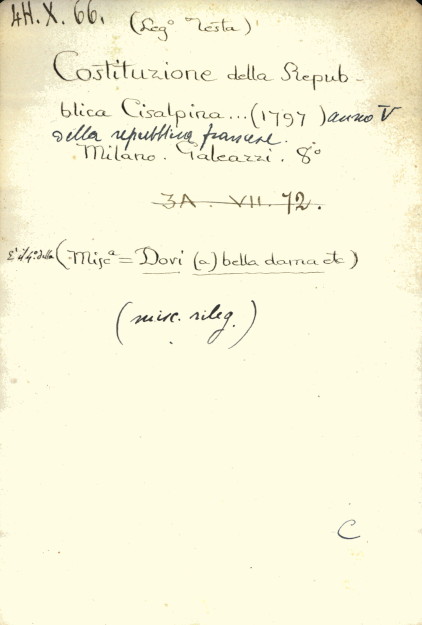 4H.X.66.
(Leg° Testa)
Costituzione della Repub-
blica Cisalpina...(1797) anno V
della repubblica francese.
Milano. Galeazzi. 8°
3A. VII. 72.
E' il 4° della (Misc.ª = Dovi (a) bella dama etc)
(misc. rileg.)
C